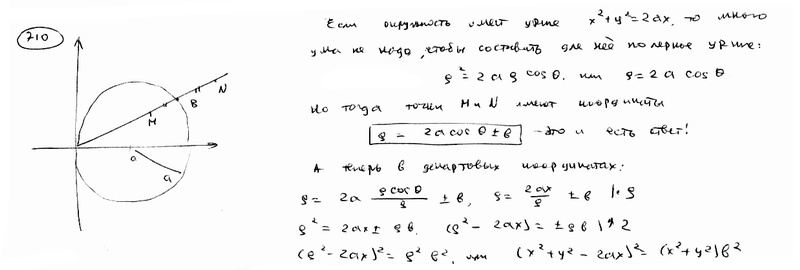 710
M
B
N
a
a
Если окружность имеет ур-ние x²+y²=2ax, то много
ума не надо, чтобы составить для неё полярное ур-ние:
ρ² = 2aρ cosθ. или ρ = 2a cosθ
Но тогда точки M и N имеют координаты
ρ = 2a cosθ ± b - это и есть ответ!
А теперь в декартовых координатах:
ρ = 2a (ρ cosθ)/ρ ± b, ρ = 2ax/ρ ± b |·ρ
ρ² = 2ax ± ρb. (ρ² - 2ax) = ±ρb |^2
(ρ² - 2ax)² = ρ²b², или (x²+y² - 2ax)² = (x²+y²)b²